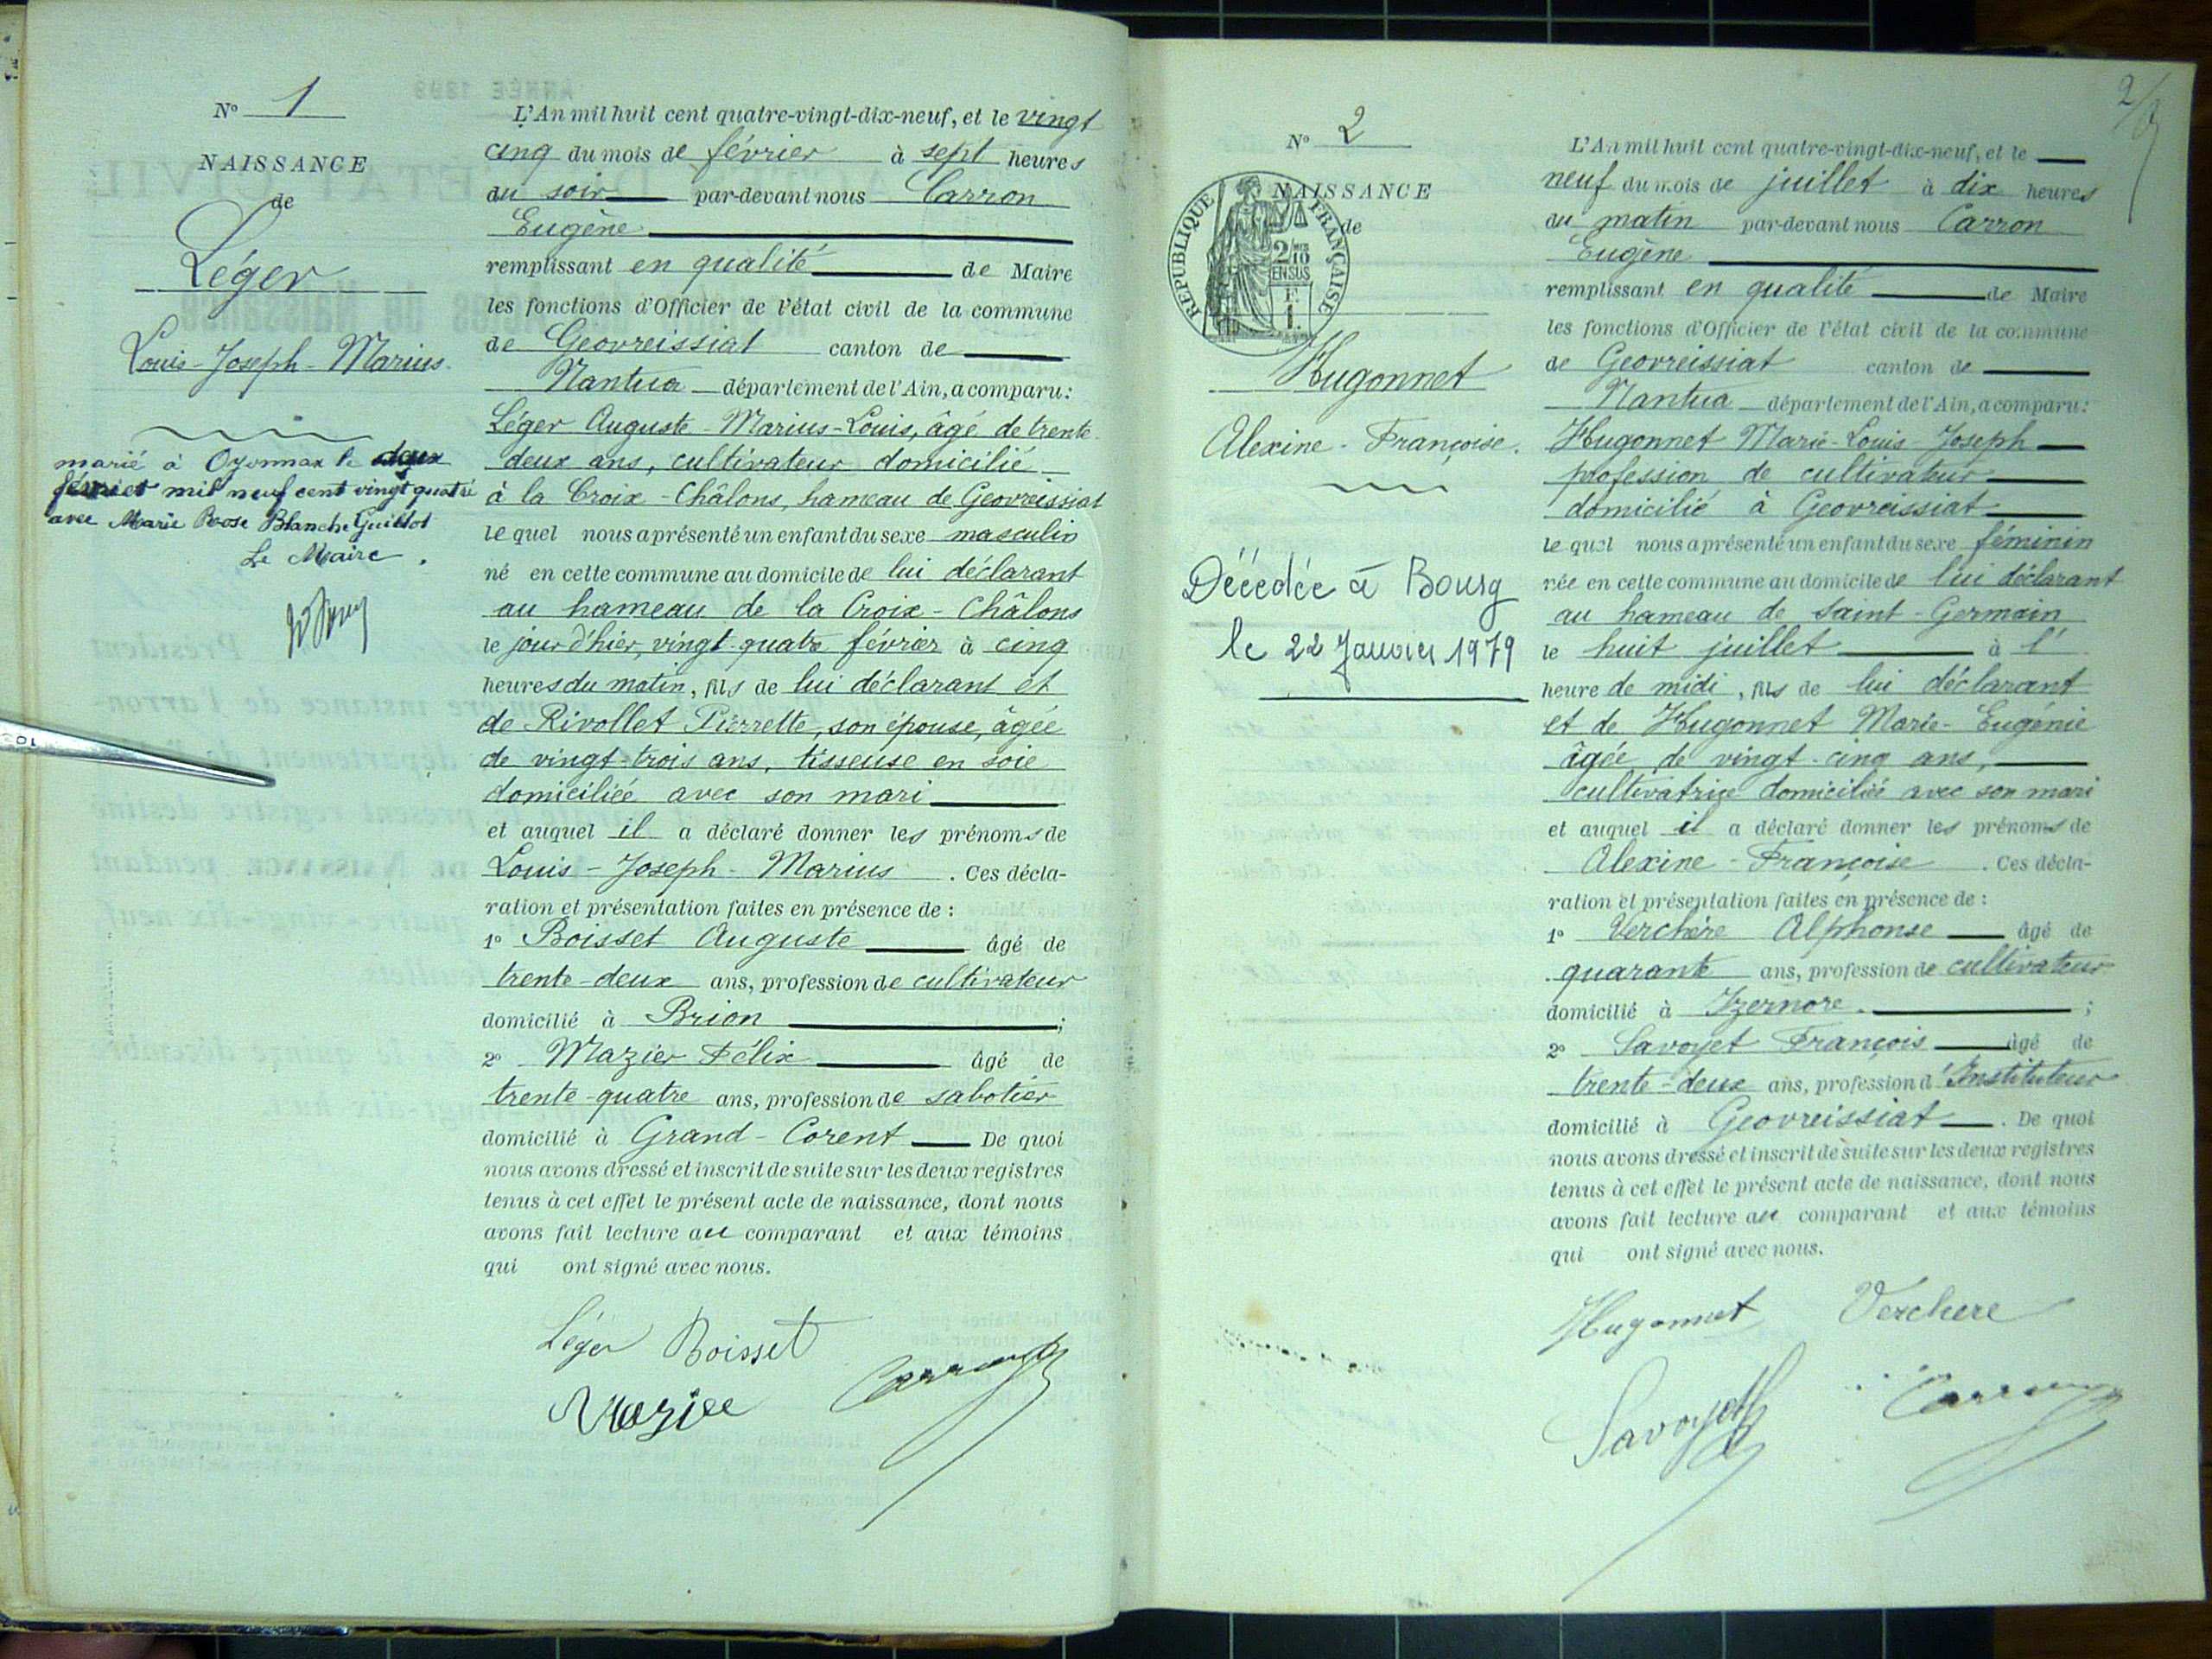 N° 1
NAISSANCE
de
Léger
Louis-Joseph-Marius.
marié à Oyonnax le deux
février mil neuf cent vingt quatre
avec Marie Rose Blanche Guillot
Le Maire.
L'An mil huit cent quatre-vingt-dix-neuf, et le vingt
cinq du mois de février à sept heures
du soir par-devant nous Carron
Eugène
remplissant en qualité de Maire
les fonctions d'Officier de l'état civil de la commune
de Geovreissiat canton de
Nantua département de l'Ain, a comparu:
Léger Auguste-Marius-Louis, âgé de trente
deux ans, cultivateur domicilié
à la Croix-Châlons, hameau de Geovreissiat
lequel nous a présenté un enfant du sexe masculin
né en cette commune au domicile de lui déclarant
au hameau de la Croix-Châlons
le jour d'hier, vingt-quatre février à cinq
heures du matin, fils de lui déclarant et
de Rivollet Pierrette, son épouse, âgée
de vingt-trois ans, tisseuse en soie
domiciliée avec son mari
et auquel il a déclaré donner les prénoms de
Louis-Joseph-Marius. Ces décla-
ration et présentation faites en présence de :
1° Boisset Auguste âgé de
trente-deux ans, profession de cultivateur
domicilié à Brion ;
2° Mazier Félix âgé de
trente-quatre ans, profession de sabotier
domicilié à Grand-Corent De quoi
nous avons dressé et inscrit de suite sur les deux registres
tenus à cet effet le présent acte de naissance, dont nous
avons fait lecture au comparant et aux témoins
qui ont signé avec nous.
Léger Boisset
Carron
N° 2
NAISSANCE
de
REPUBLIQUE FRANÇAISE
2/10
EN SUS
Hugonnet
Alexine-Françoise.
Décédée à Bourg
le 22 Janvier 1979
2
L'An mil huit cent quatre-vingt-dix-neuf, et le
neuf du mois de juillet à dix heures
du matin par-devant nous Carron
Eugène
remplissant en qualité de Maire
les fonctions d'Officier de l'état civil de la commune
de Geovreissiat canton de
Nantua département de l'Ain, a comparu:
Hugonnet Marie-Louis-Joseph
profession de cultivateur
domicilié à Geovreissiat
lequel nous a présenté un enfant du sexe féminin
née en cette commune au domicile de lui déclarant
au hameau de Saint-Germain
le huit juillet à l'
heure de midi, fils de lui déclarant
et de Hugonnet Marie-Eugénie
âgée de vingt-cinq ans,
cultivatrice domiciliée avec son mari
et auquel il a déclaré donner les prénoms de
Alexine-Françoise. Ces décla-
ration et présentation faites en présence de :
1° Verchère Alphonse âgé de
quarante ans, profession de cultivateur
domicilié à Izernore. ;
2° Savoyet François âgé de
trente-deux ans, profession d'Instituteur
domicilié à Geovreissiat. De quoi
nous avons dressé et inscrit de suite sur les deux registres
tenus à cet effet le présent acte de naissance, dont nous
avons fait lecture au comparant et aux témoins
qui ont signé avec nous.
Hugonnet Verchere
Savoyet Carron